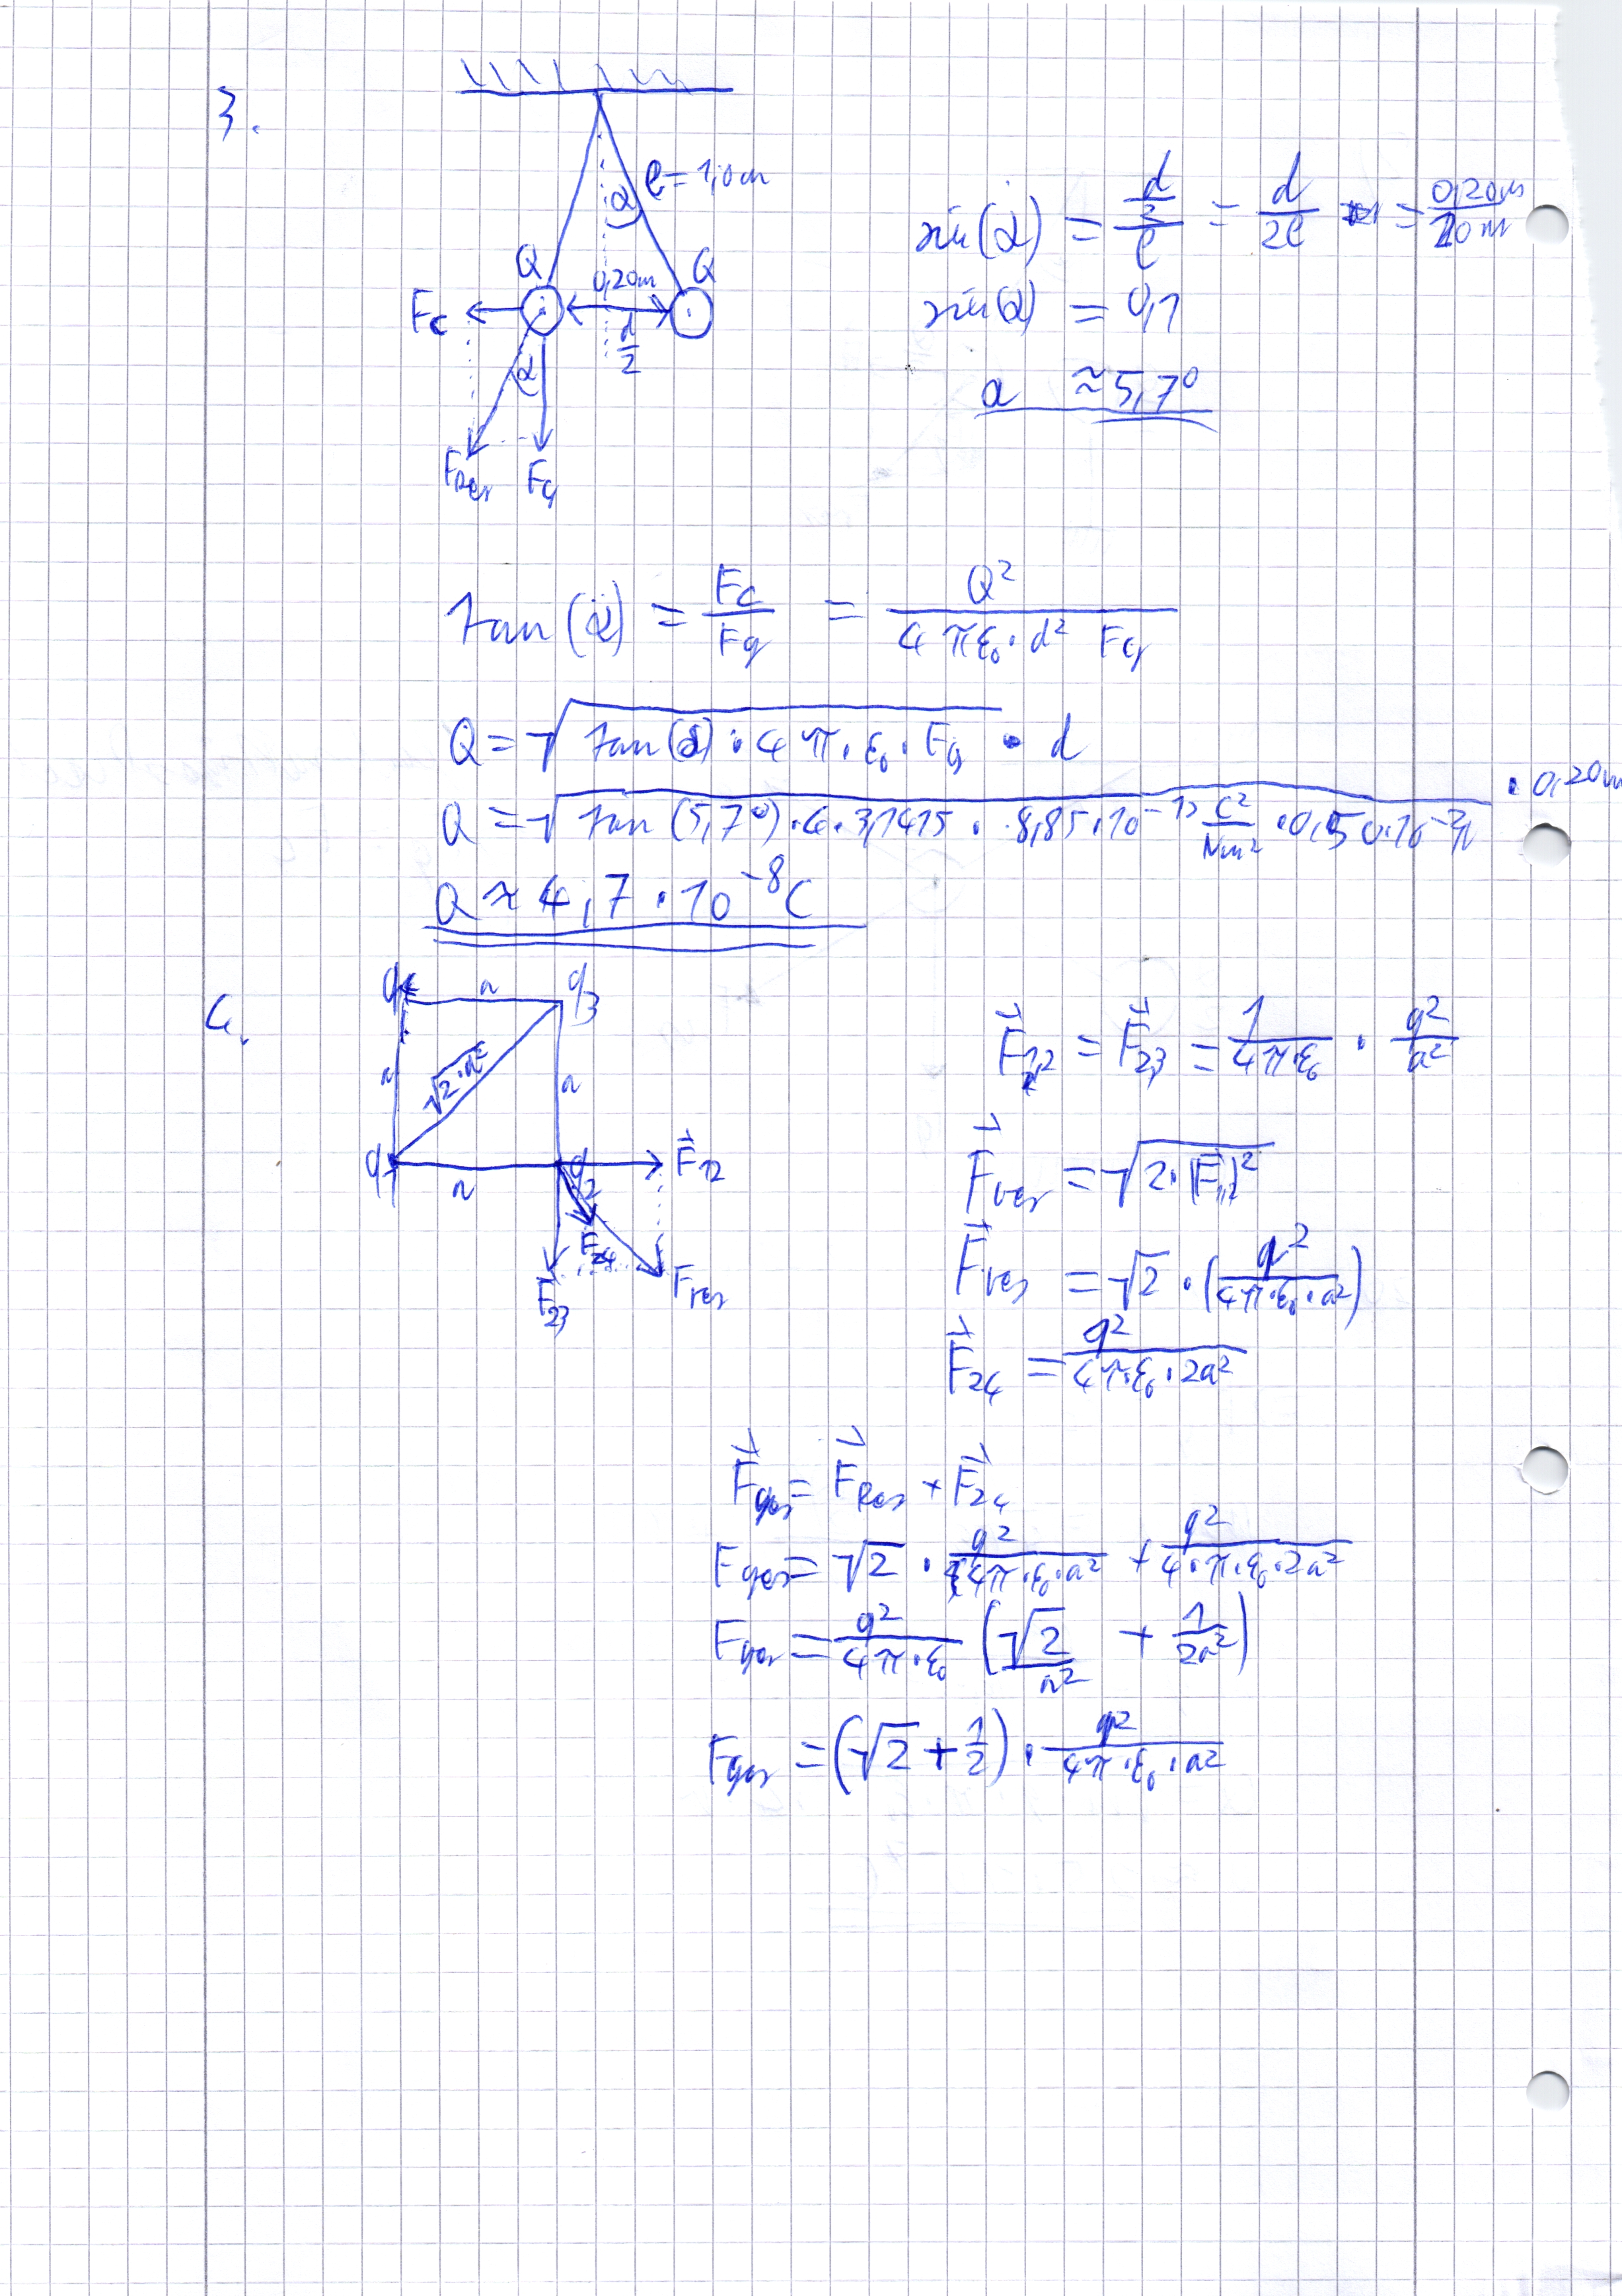 3.
l = 1,0 m
α
Q
Q
0,20m
F_C
d/2
α
F_Res
F_G
sin(α) = (d/2)/l = d/2l = 0,20m/2,0m
sin(α) = 0,1
α ≈ 5,7°
tan(α) = F_C/F_G = Q²/(4πε₀·d² F_G)
Q = √(tan(α)·4π·ε₀·F_G) · d
Q = √(tan(5,7°)·4·3,1415·8,85·10⁻¹² C²/Nm²·0,50·10⁻³N) · 0,20m
Q ≈ 4,7·10⁻⁸C
4.
q₄ a q₃
a √2·a² a
q₁ a q₂ F⃗₁₂
F₂₄
F₂₃ F_res
F⃗₁₂ = F⃗₂₃ = 1/(4πε₀) · q²/a²
F⃗_res = √(2·|F⃗₁₂|²)
F⃗_res = √2·(q²/(4π·ε₀·a²))
F⃗₂₄ = q²/(4π·ε₀·2a²)
F⃗_ges = F⃗_Res + F⃗₂₄
F_ges = √2 · q²/(4π·ε₀·a²) + q²/(4·π·ε₀·2a²)
F_ges = q²/(4π·ε₀) (√2/a² + 1/2a²)
F_ges = (√2 + 1/2) · q²/(4π·ε₀·a²)